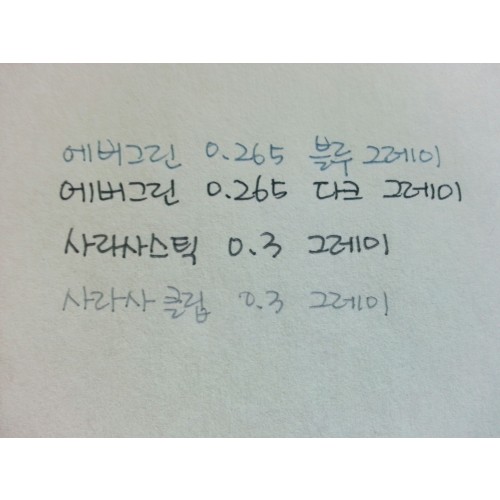 에버그린 0.265 블루 그레이
에버그린 0.265 다크 그레이
사라사스틱 0.3 그레이
사라사 클립 0.3 그레이